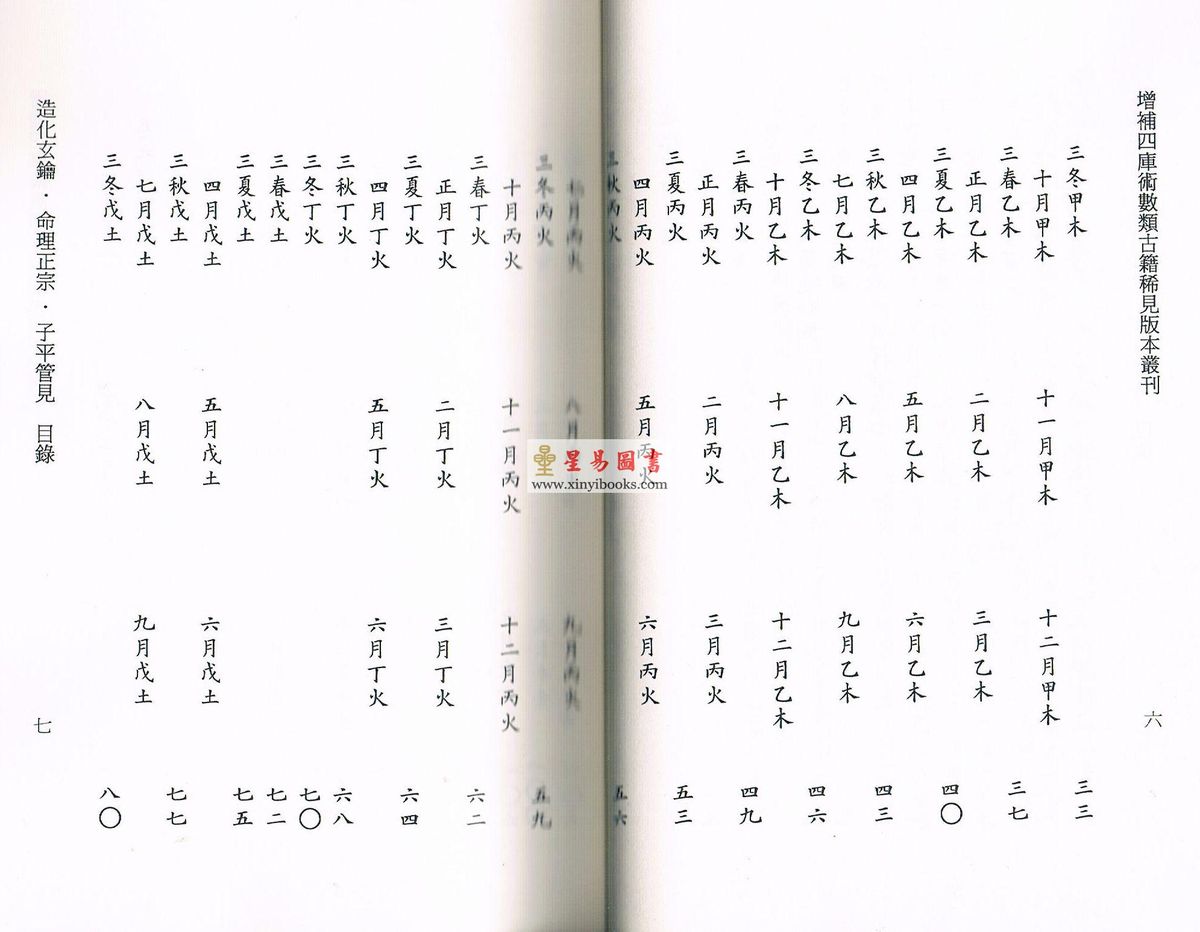 增補四庫術數類古籍稀見版本叢刊 六
三冬甲木 三三
十月甲木 十一月甲木 十二月甲木
三春乙木 三七
正月乙木 二月乙木 三月乙木
三夏乙木 四〇
四月乙木 五月乙木 六月乙木
三秋乙木 四三
七月乙木 八月乙木 九月乙木
三冬乙木 四六
十月乙木 十一月乙木 十二月乙木
三春丙火 四九
正月丙火 二月丙火 三月丙火
三夏丙火 五三
四月丙火 五月丙火 六月丙火
三秋丙火 五六
月丙火 八月 九月丙火
三冬丙火 五九
十月丙火 十一月丙火 十二月丙火
三春丁火 六二
正月丁火 二月丁火 三月丁火
三夏丁火 六四
四月丁火 五月丁火 六月丁火
三秋丁火 六八
三冬丁火 七〇
三春戊土 七二
三夏戊土 七五
四月戊土 五月戊土 六月戊土
三秋戊土 七七
七月戊土 八月戊土 九月戊土
三冬戊土 八〇
造化玄鑰・命理正宗・子平管見 目錄 七
星易圖書
www.xinyibooks.com